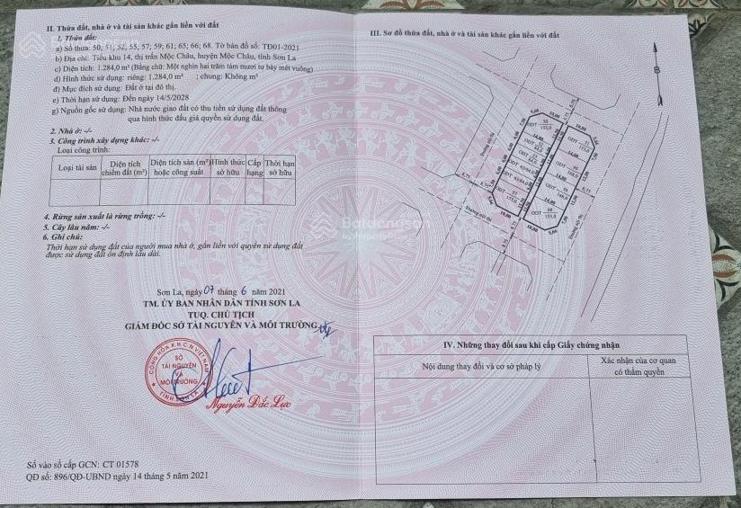 II. Thửa đất, nhà ở và tài sản khác gắn liền với đất
1. Thửa đất:
a) Số thửa: 50, 51, 52, 55, 57, 59; 61; 65; 66; 68. Tờ bản đồ số: TĐ01-2021
b) Địa chỉ: Tiểu khu 14, thị trấn Mộc Châu, huyện Mộc Châu, tỉnh Sơn La
c) Diện tích: 1.284,0 m² (Bằng chữ: Một nghìn hai trăm tám mươi tư phẩy mét vuông)
d) Hình thức sử dụng: riêng: 1.284,0 m² ; chung: Không m²
đ) Mục đích sử dụng: Đất ở tại đô thị.
e) Thời hạn sử dụng: Đến ngày 14/5/2028
g) Nguồn gốc sử dụng: Nhà nước giao đất có thu tiền sử dụng đất thông
qua hình thức đấu giá quyền sử dụng đất.
2. Nhà ở: -/-
3. Công trình xây dựng khác: -/-
Loại công trình:
Loại tài sản
Diện tích chiếm đất (m²)
Diện tích sàn (m²) hoặc công suất
Hình thức sở hữu
Cấp hạng
Thời hạn sở hữu
4. Rừng sản xuất là rừng trồng: -/-
5. Cây lâu năm: -/-
6. Ghi chú:
Thời hạn sử dụng đất của người mua nhà ở, gắn liền với quyền sử dụng đất
được sử dụng đất ổn định lâu dài.
Sơn La, ngày 07 tháng 6 năm 2021
TM. ỦY BAN NHÂN DÂN TỈNH SƠN LA
TUQ. CHỦ TỊCH
GIÁM ĐỐC SỞ TÀI NGUYÊN VÀ MÔI TRƯỜNG
CỘNG HÒA X.H.C.N VIỆT NAM
SỞ
TÀI NGUYÊN
VÀ
MÔI TRƯỜNG
TỈNH SƠN LA
Nguyễn Đắc Lực
Số vào sổ cấp GCN: CT 01578
QĐ số: 896/QĐ-UBND ngày 14 tháng 5 năm 2021
III. Sơ đồ thửa đất, nhà ở và tài sản khác gắn liền với đất
B
Batdongsan
IV. Những thay đổi sau khi cấp Giấy chứng nhận
Nội dung thay đổi và cơ sở pháp lý
Xác nhận của cơ quan
có thẩm quyền